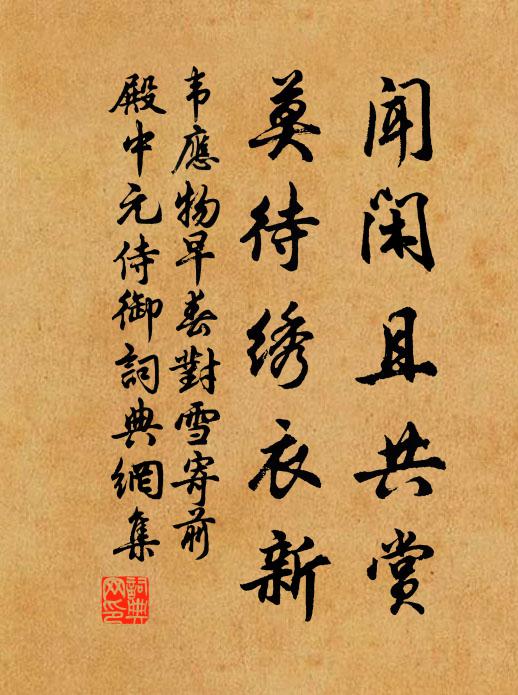 闻闲且共赏
莫待绣衣新
韦應物早春對雪寄前
殿中元侍御詞典網集
詞典网印